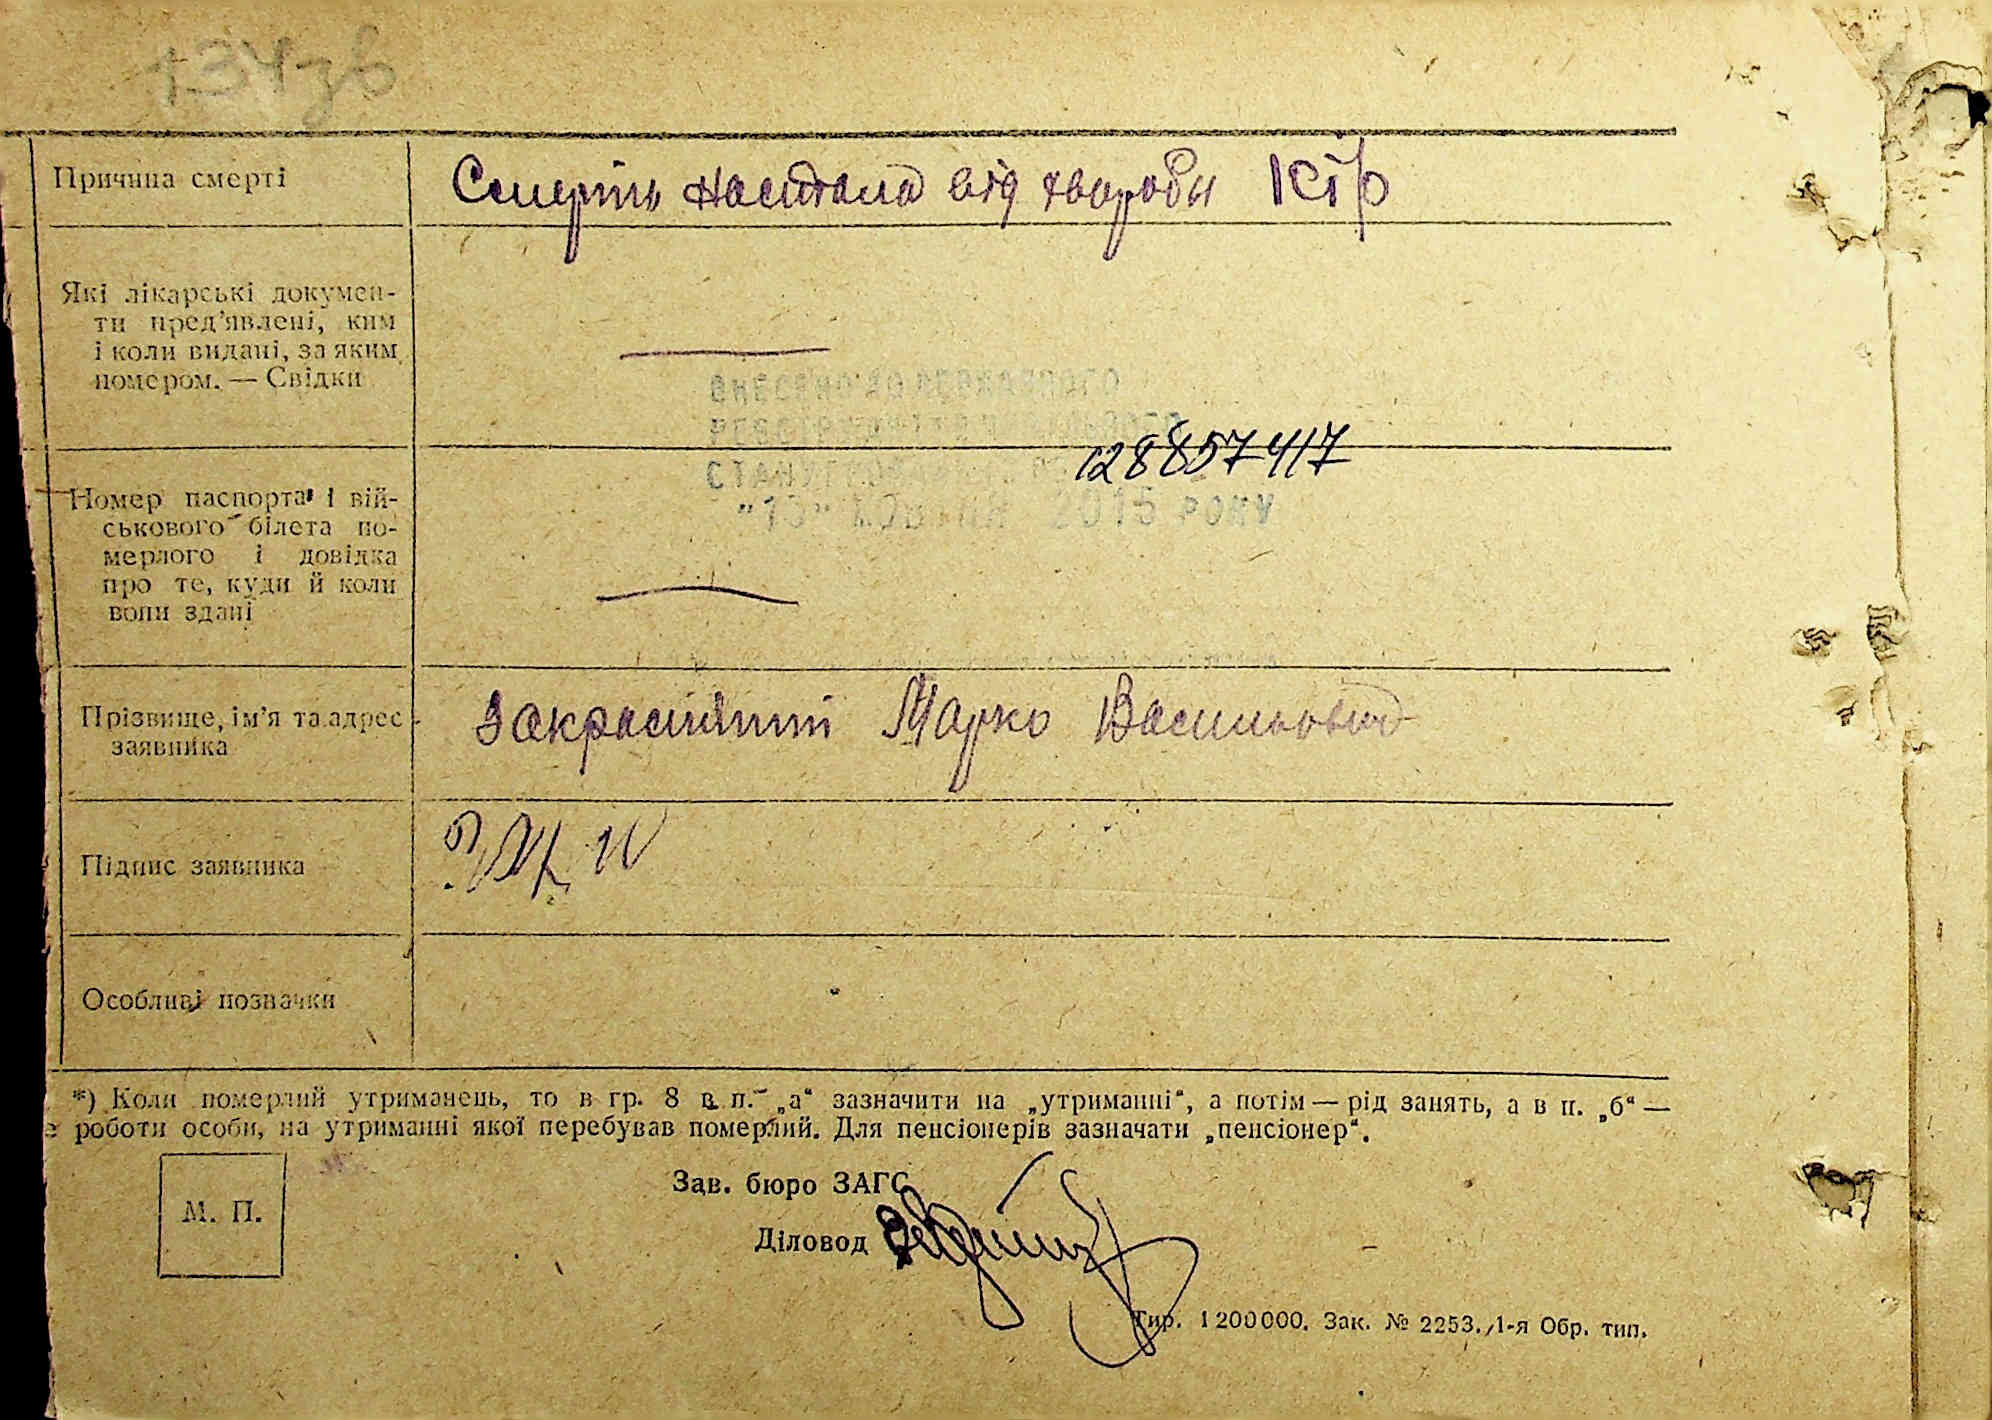 134зв
Причина смерті
Смерть настала від хвороби Кір
Які лікарські докумен-
ти пред’явлені, ким
і коли видані, за яким
номером. — Свідки
ВНЕСЕНО ДО ДЕРЖАВНОГО
РЕЄСТРУ
128857417
2015 РОКУ
Номер паспорта і вій-
ськового білета по-
мерлого і довідка
про те, куди й коли
вони здані
Прізвище, ім’я та адрес
заявника
Марко Васильович
Підпис заявника
Особливі позначки
*) Коли померлий утриманець, то в гр. 8 в п. „а“ зазначити на „утриманні“, а потім — рід занять, а в п. „б“ —
роботи особи, на утриманні якої перебував померлий. Для пенсіонерів зазначати „пенсіонер“.
М. П.
Зав. бюро ЗАГС
Діловод
Тир. 1200000. Зак. № 2253. 1-я Обр. тип.